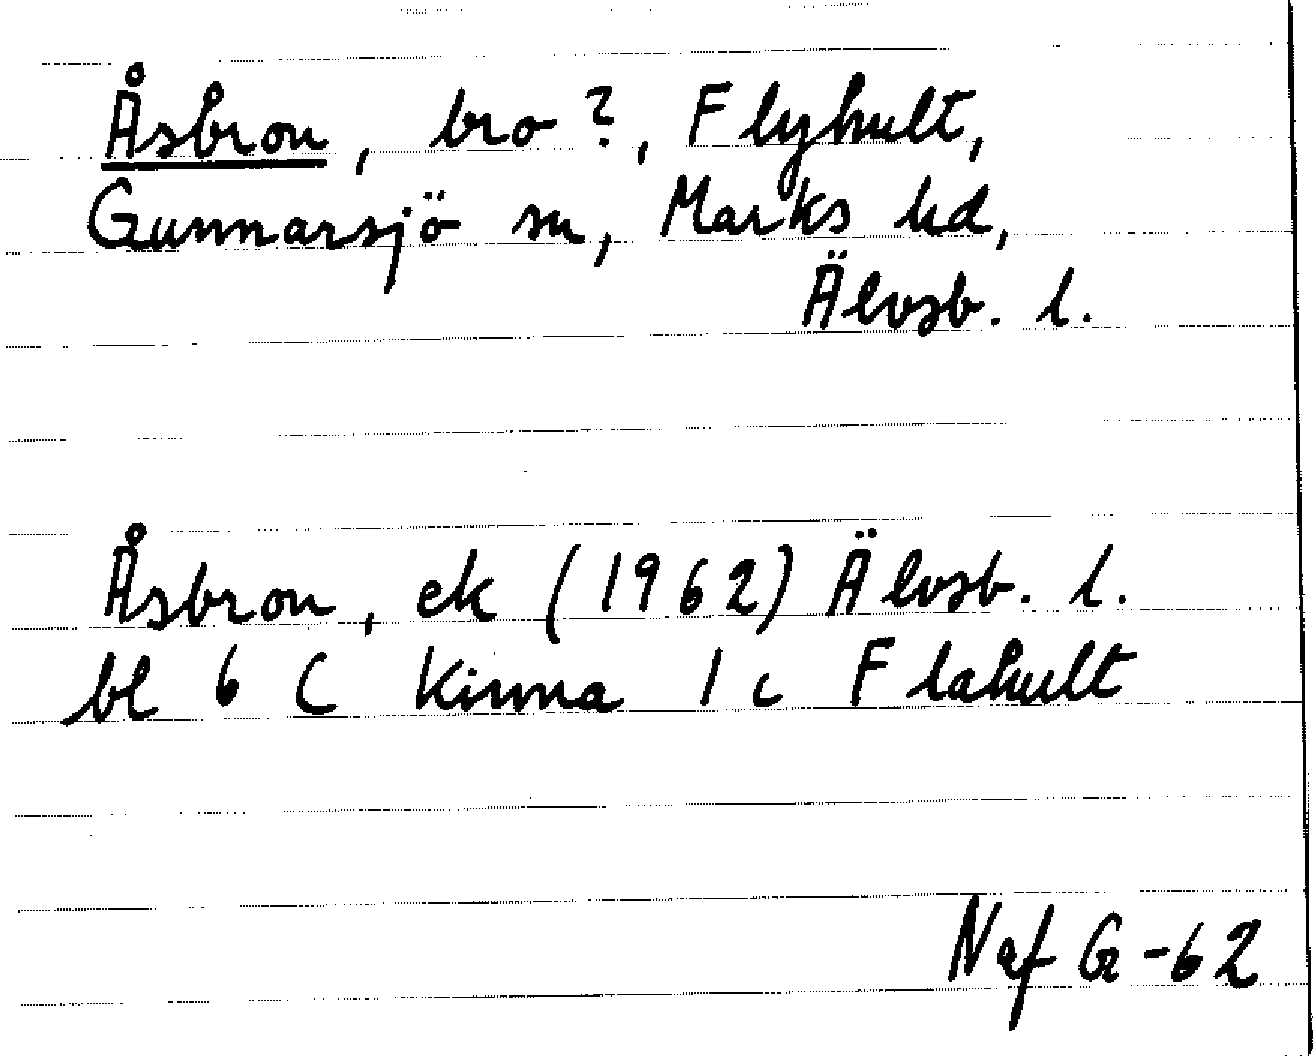 Åsbron, bro?, Flyhult,
Gunnarsjö sn, Marks hd,
Älvsb. l.
Åsbron, ek (1962) Älvsb. l.
bl 6 C Kinna 1 c Flahult
Naf G-62